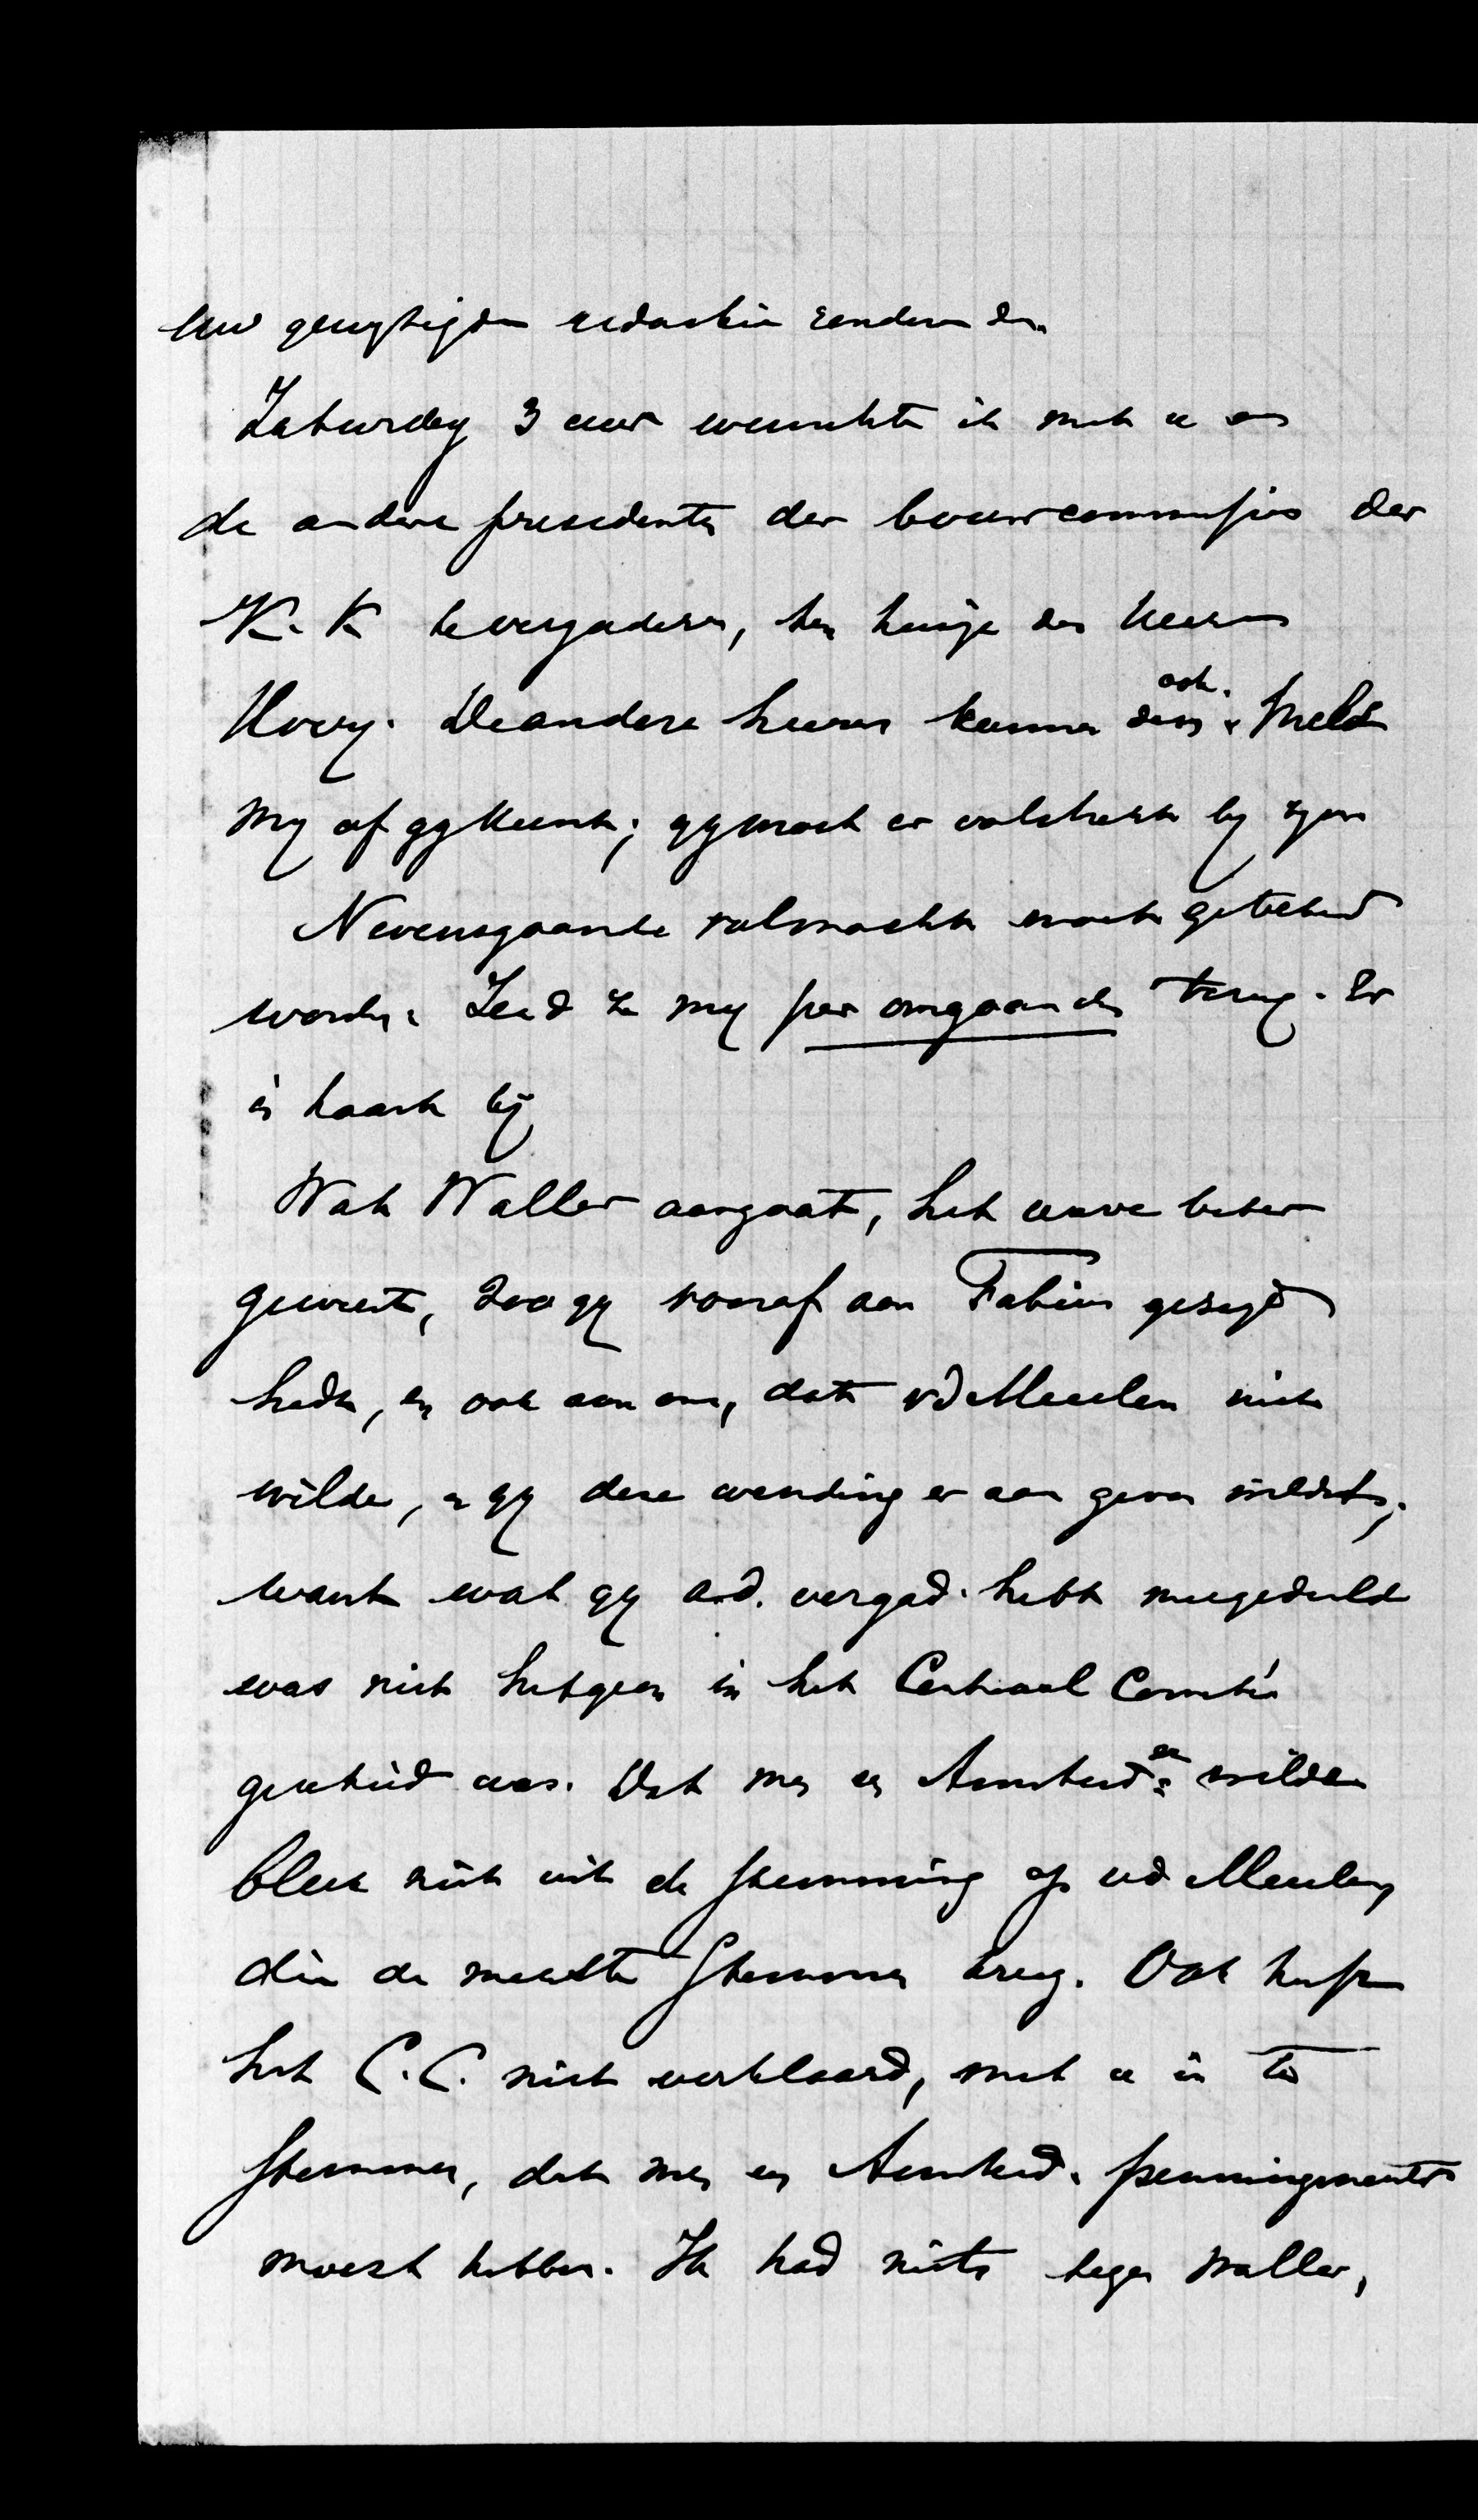 uw gewijzigde redactie zenden.
Zaturdag 3 uur wenschte ik met u en
de andere presidenten der bouwcommissies der
K. K te vergaderen, ten huize des heeren
Hovy. De andere heeren kunnen dan ook. Meld
my of gy kunt; gy moet er volstrekt by zyn
Nevensgaande volmacht moet getekend
worden. Zend ze my per omgaande terug. Er
is haast bij
Wat Waller aangaat, het ware beter
geweest, zoo gy vooraf aan Fabius gezegd
hadt, en ook aan ons, dat vd Meulen niet
wilde, en gy deze wending er aan geven wildet;
want wat gy a.d. vergad. hebt meegedeeld
was niet hetgeen in het Centraal Comité
geschied was. Dat men een Amsterd.er wilde
bleek niet uit de stemming op vd Meulen
die de meeste stemmen kreeg. Ook heeft
het C.C. niet verklaard, met u in te
stemmen, dat men een Amsterd. penningmeester
moest hebben. Ik had niets tegen Waller,